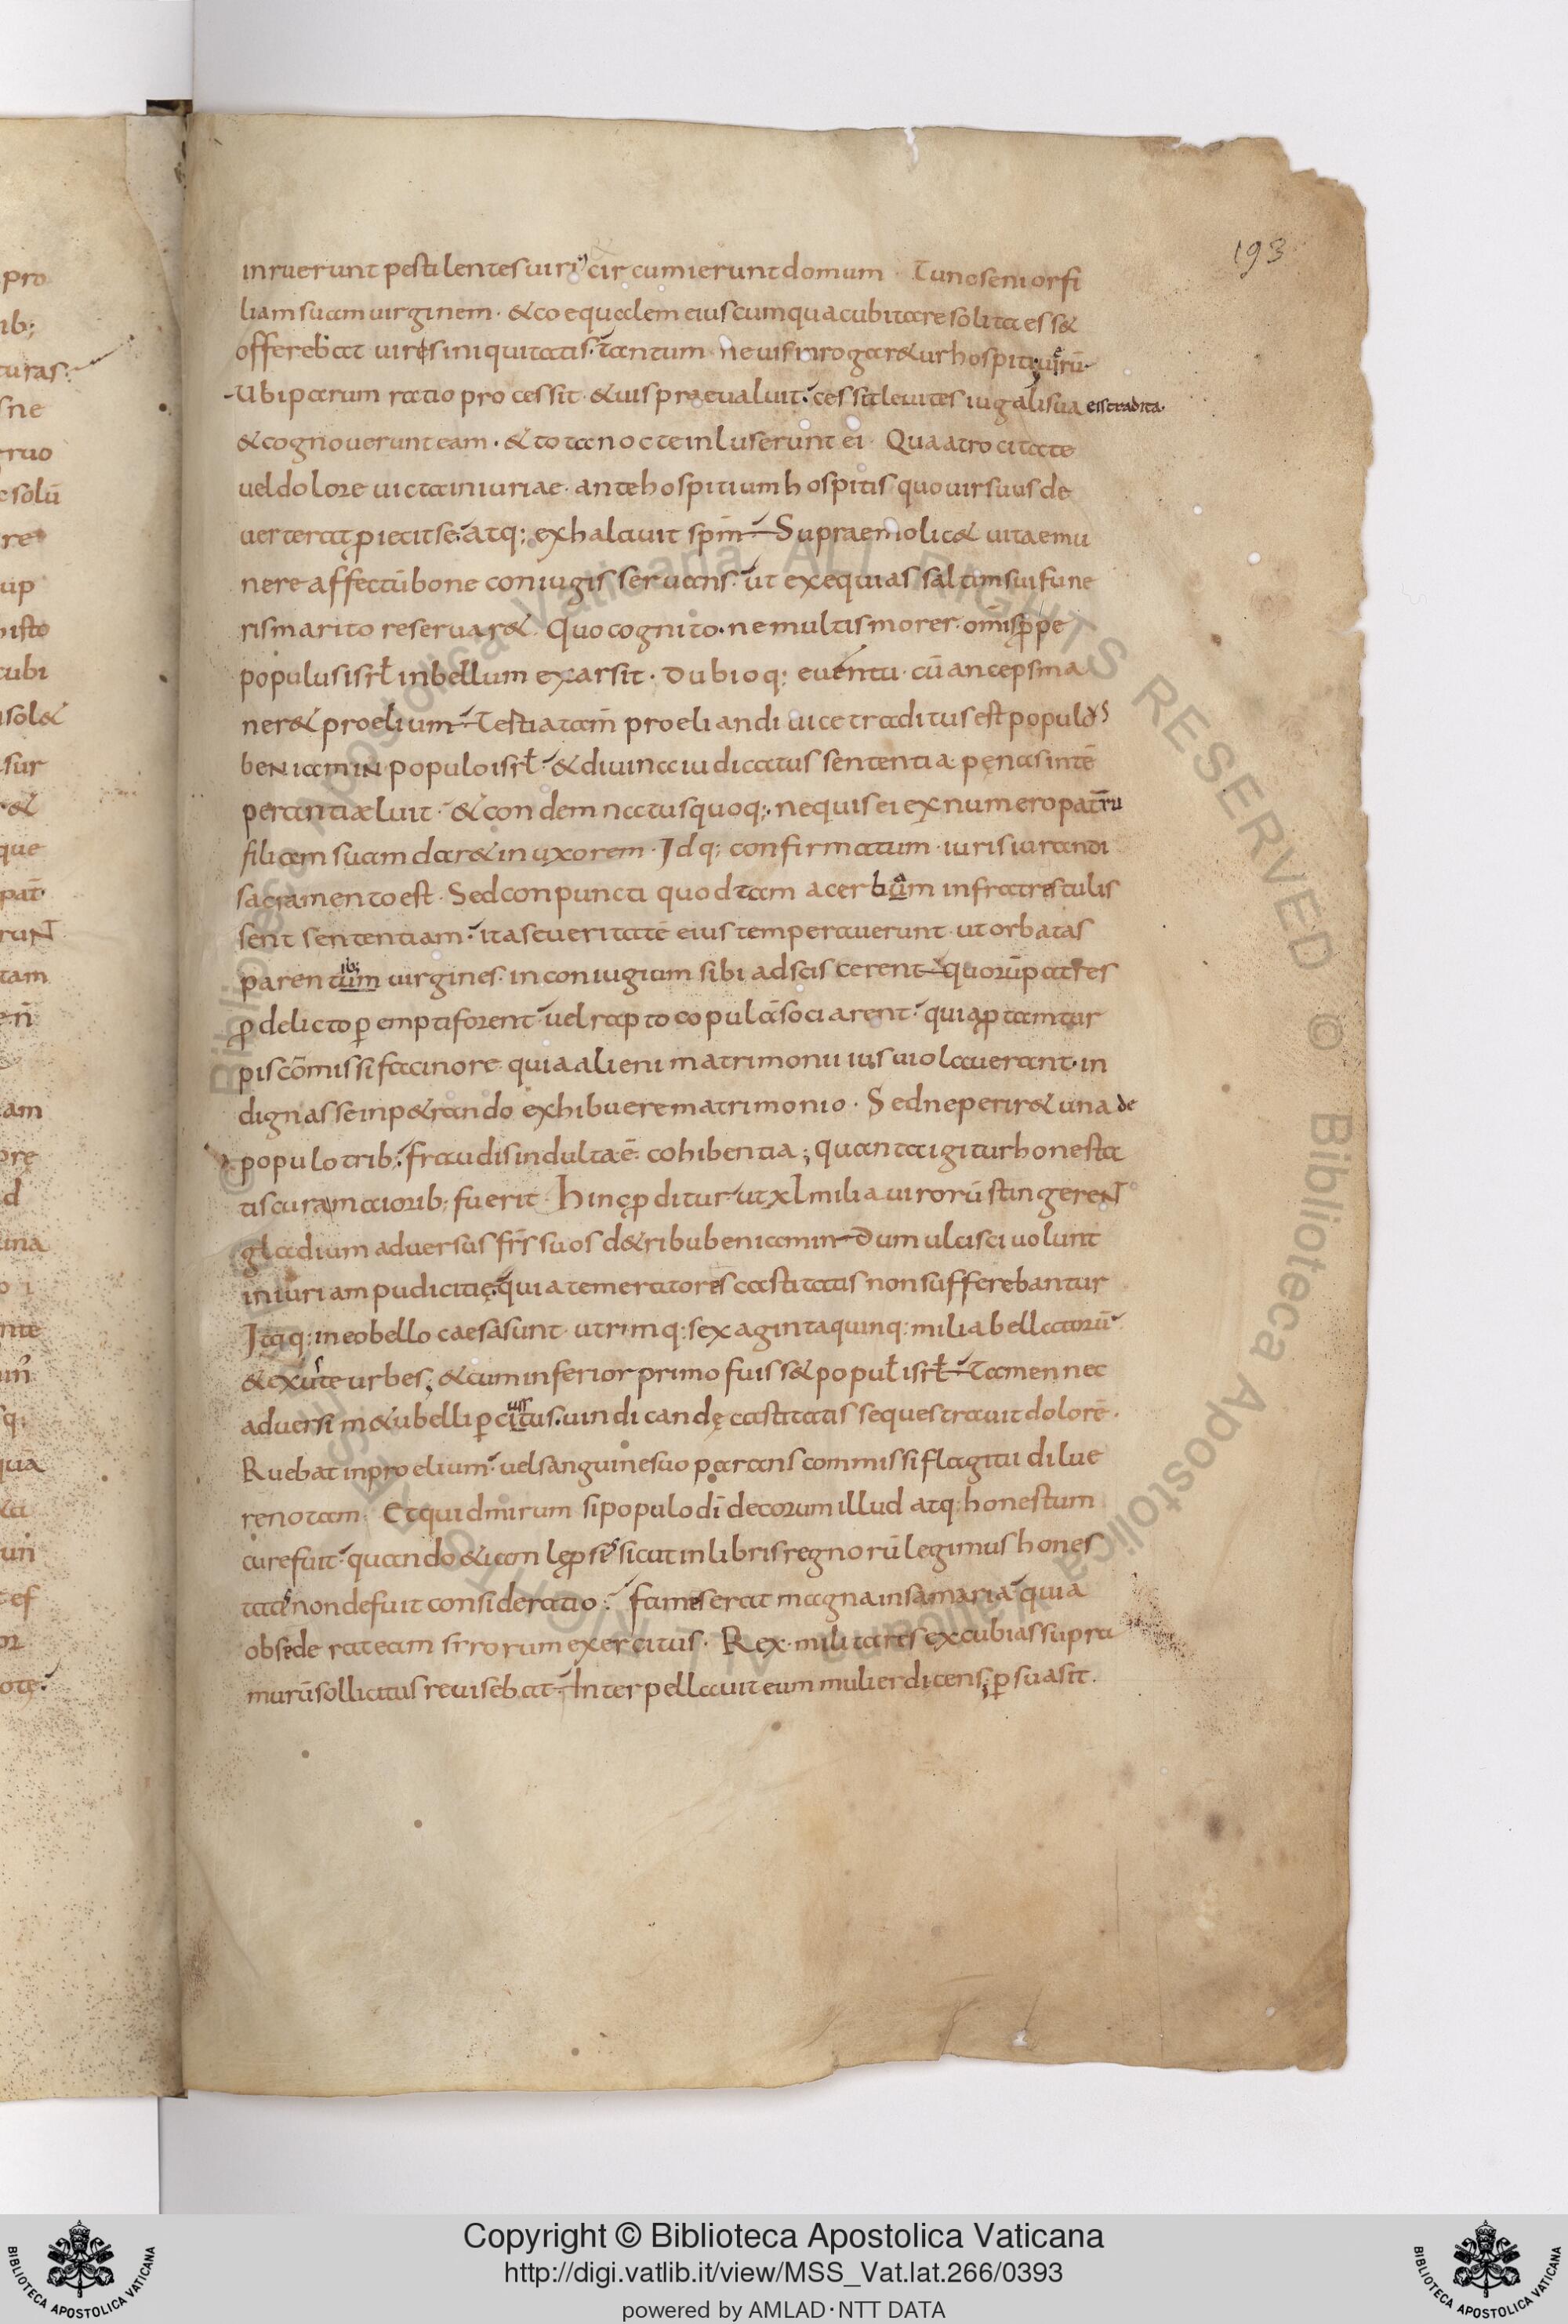 193
inruerunt pestilentes uiri circumierunt domum · Tunc senior fi
liam suam uirginem · & coequalem eius cum qua cubitare solita ess&
offerebat uires iniquitatis · tantum ne uis inrogar&ur hospiti
Ubi parum ratio processit · & uis praeualuit · cessit leuites iugali sua eis tradita ·
& cognouerunt eam · & tota nocte inluserunt ei · Qua atrocitate
uel dolore uicta iniuriae · ante hospitium hospitis quo uir suus de
uerterat ꝓiecit se · atq; exhalauit spm̄ Supraemo lic& uitae mu
nere affectū bone coniugis seruans · ut exequias saltim sui fune
ris marito reseruar& Quo cognito · ne multis morer · om̄is ꝓpe
populus isrł in bellum exarsit · Dubioq; euentu · cū anceps ma
ner& proelium Testia tam̄ proeliandi uice traditus est populus
beniamin populo isrł · & diuina iudicatus sententia pęnas intē
perantiae luit · & condemnatus quoq; · nequis ei ex numero patrū
filiam suam dar& in uxorem · Idq; confirmatum · iurisiurandi
sacramento est · Sed conpuncti quod tam acerbam in fratres tulis
sent sententiam · ita seueritatē eius temperauerunt · ut orbatas
parentib; um uirgines · in coniugium sibi adsciscerent quorū patres
ꝓ delicto ꝑempti forent · uel rapto copulā sociarent · quia ꝓ tam tur
pis cōmissi facinore quia alieni matrimonii ius uiolauerant · in
dignas se inp&rando exhibuere matrimonio · Sed ne perir& una de
populo trib; · fraudis indulta ē cohibentia ; quanta igitur honesta
tis cura maiorib; fuerit · Hinc ꝓditur · ut xl milia uirorū stringerent
gladium aduersus frs̄ suos de tribu beniamin Dum ulcisci uolunt
iniuriam pudicitię quia temeratores castitatis non sufferebantur
Itaq; in eo bello caesa sunt · utrimq; sexaginta quinq; milia bellatorū
& exuste urbes ; & cum inferior primo fuiss& popuł isrł Tamen nec
aduersi m&u belli percitus uindicandę castitatis sequestrauit dolorē ·
Ruebat in proelium · uel sanguine suo parans commissi flagitii dilue
re notam Et quid mirum si populo dī decorum illud atq; honestum
cure fuit · quando &iam leprosis sicut in libris regnorū legimus hones
tatis non defuit consideratio Fames erat magna in samaria · quia
obsederat eam sirorum exercitus · Rex militares excubias supra
murū sollicitus reuisebat · Interpellauit eum mulier dicens ; ꝑsuasit ·
Copyright © Biblioteca Apostolica Vaticana
http://digi.vatlib.it/view/MSS_Vat.lat.266/0393
powered by AMLAD·NTT DATA